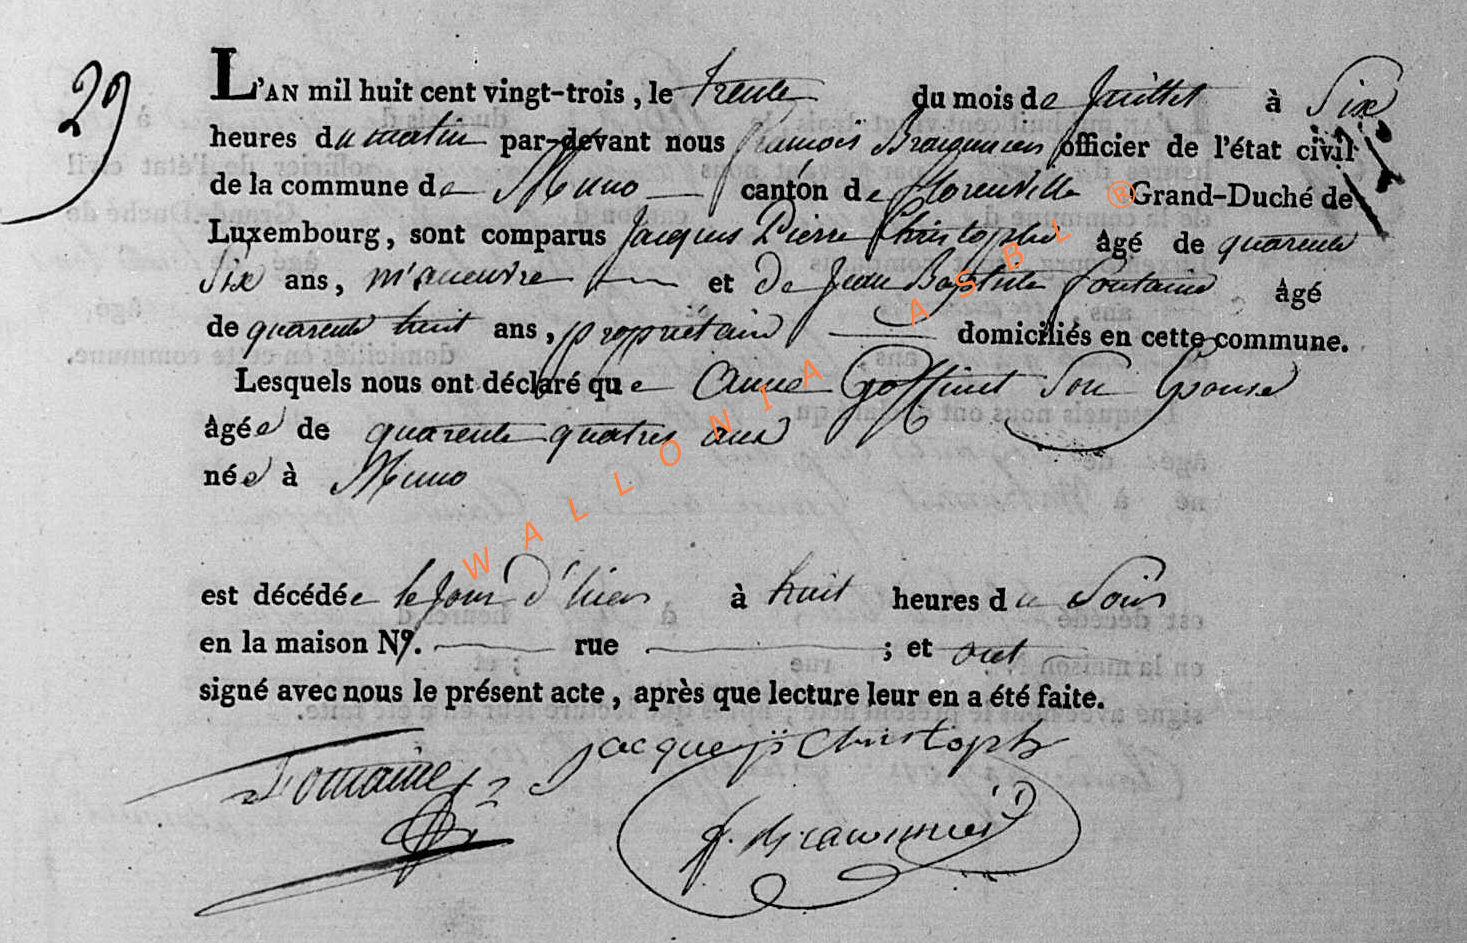 29
L'AN mil huit cent vingt-trois, le trente du mois de Juillet à Six
heures du matin par-devant nous francois officier de l'état civil
de la commune de Muno canton de florenville Grand-Duché de
Luxembourg, sont comparus Jacques Pierre Christophe âgé de quarente
Six ans, m'aneuvre et de Jean Baptiste fontaine âgé
de quarente huit ans, propriétaire domiciliés en cette commune.
Lesquels nous ont déclaré que Anne Goffinet Son Epouse
âgée de quarente quatres ans
née à Muno
est décédée le Jour d'hier à huit heures du Soir
en la maison No. rue ; et ont
signé avec nous le présent acte, après que lecture leur en a été faite.
Jacque Christoph
Fontaine
WALLONIA ASBL ®